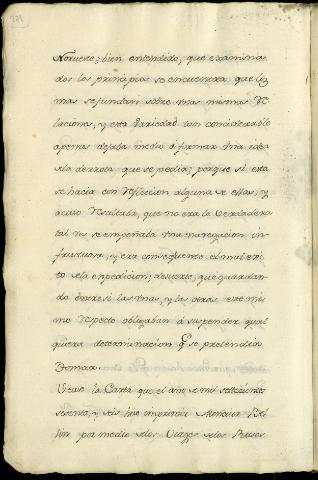 Norueste; bien entendido, que examina-
dos los principios se encuentra que las
mas se fundan sobre unas mismas re-
laciones, y esta variedad tan considerable
apenas dejaba medio a formar una idea
de la derrota que se pedia; porque si esta
se hacia con reflección alguna de ellas, y
acaso resultaba, que no era la verdadera
tal vez se empeñaba una navegacion in-
fructuosa, y era consequente el malexi-
to de la expedicion; de suerte, que guardan-
do entre si las unas, y las otras este mis-
mo respecto obligaban á suspender qual
quiera determinacion q.e se pretendiese
tomar.
Vease la Carta que el año de mil setecientos
setenta, y seis hizo imprimir Monsieur Be-
llin por medio de los Viages de los Rusos